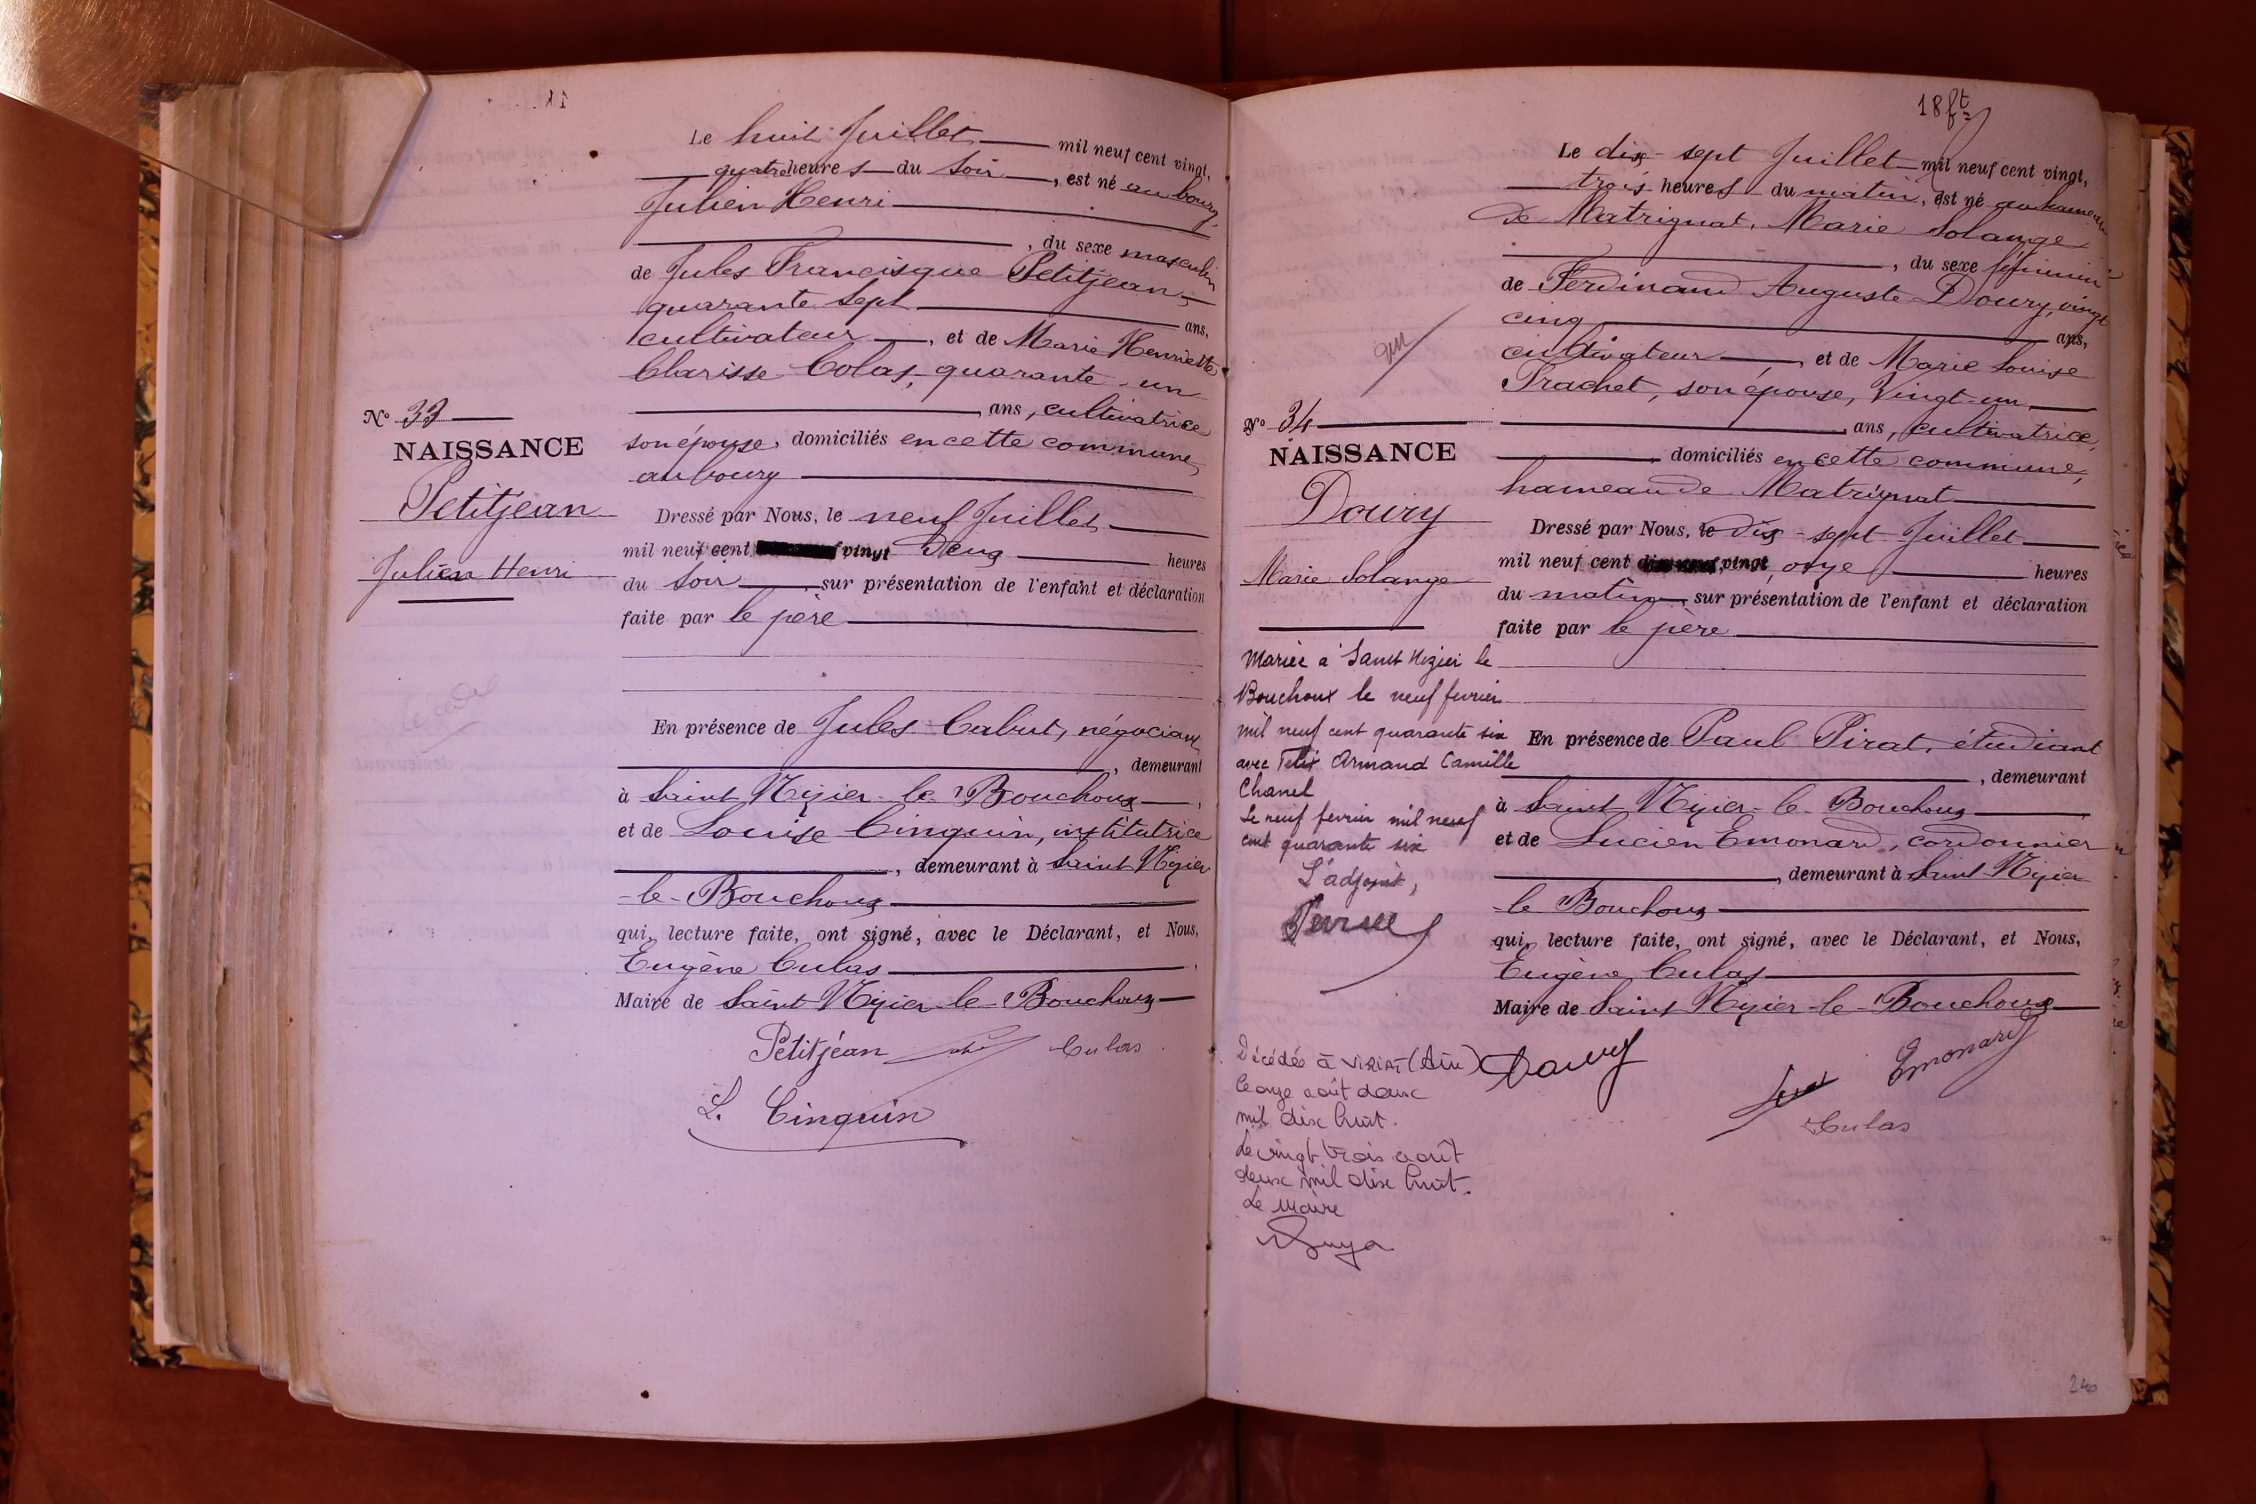 Le huit Juillet mil neuf cent vingt,
quatre heures du soir, est né au bourg
Julien Henri
, du sexe masculin
de Jules Francisque Petitjean,
quarante sept ans,
cultivateur, et de Marie Henriette
Clarisse Colas, quarante-un
ans, cultivatrice
son épouse, domiciliés en cette commune,
au bourg
Nº 33
NAISSANCE
Petitjean
Julien Henri
Dressé par Nous, le neuf Juillet
mil neuf cent vingt deux heures
du soir, sur présentation de l'enfant et déclaration
faite par le père
En présence de Jules Cabut, négociant
, demeurant
à Saint Nizier-le-Bouchoux,
et de Louise Cinquin, institutrice
, demeurant à Saint Nizier
-le-Bouchoux
qui, lecture faite, ont signé, avec le Déclarant, et Nous,
Eugène Culas,
Maire de Saint Nizier-le-Bouchoux
Petitjean Culas
L. Cinquin
18 ft
Le dix-sept Juillet mil neuf cent vingt,
trois heures du matin, est né au hameau
de Matrignat, Marie Solange
, du sexe féminin
de Ferdinand Auguste Doury, vingt
cinq ans,
cultivateur, et de Marie Louise
Prachet, son épouse, Vingt-un
ans, cultivatrice,
domiciliés en cette commune,
hameau de Matrignat
un
Nº 34
NAISSANCE
Doury
Marie Solange
Dressé par Nous, le dix-sept Juillet
mil neuf cent vingt, onze heures
du matin, sur présentation de l'enfant et déclaration
faite par le père
En présence de Paul Pirat, étudiant
, demeurant
à Saint Nizier-le-Bouchoux
et de Lucien Emonard, cordonnier
, demeurant à Saint-Nizier
-le Bouchoux
qui, lecture faite, ont signé, avec le Déclarant, et Nous,
Eugène Culas
Maire de Saint Nizier-le-Bouchoux
Doury Emonard
Culas
Mariée a Saint Nizier le
Bouchoux le neuf fevrier
mil neuf cent quarante six
avec Felix Armand Camille
Chanel
Le neuf fevrier mil neuf
cent quarante six
L'adjoint,
Décédée à VIRIAT (Ain)
le onze août deux
mil dix huit.
Le vingt trois août
deux mil dix huit.
Le Maire
240